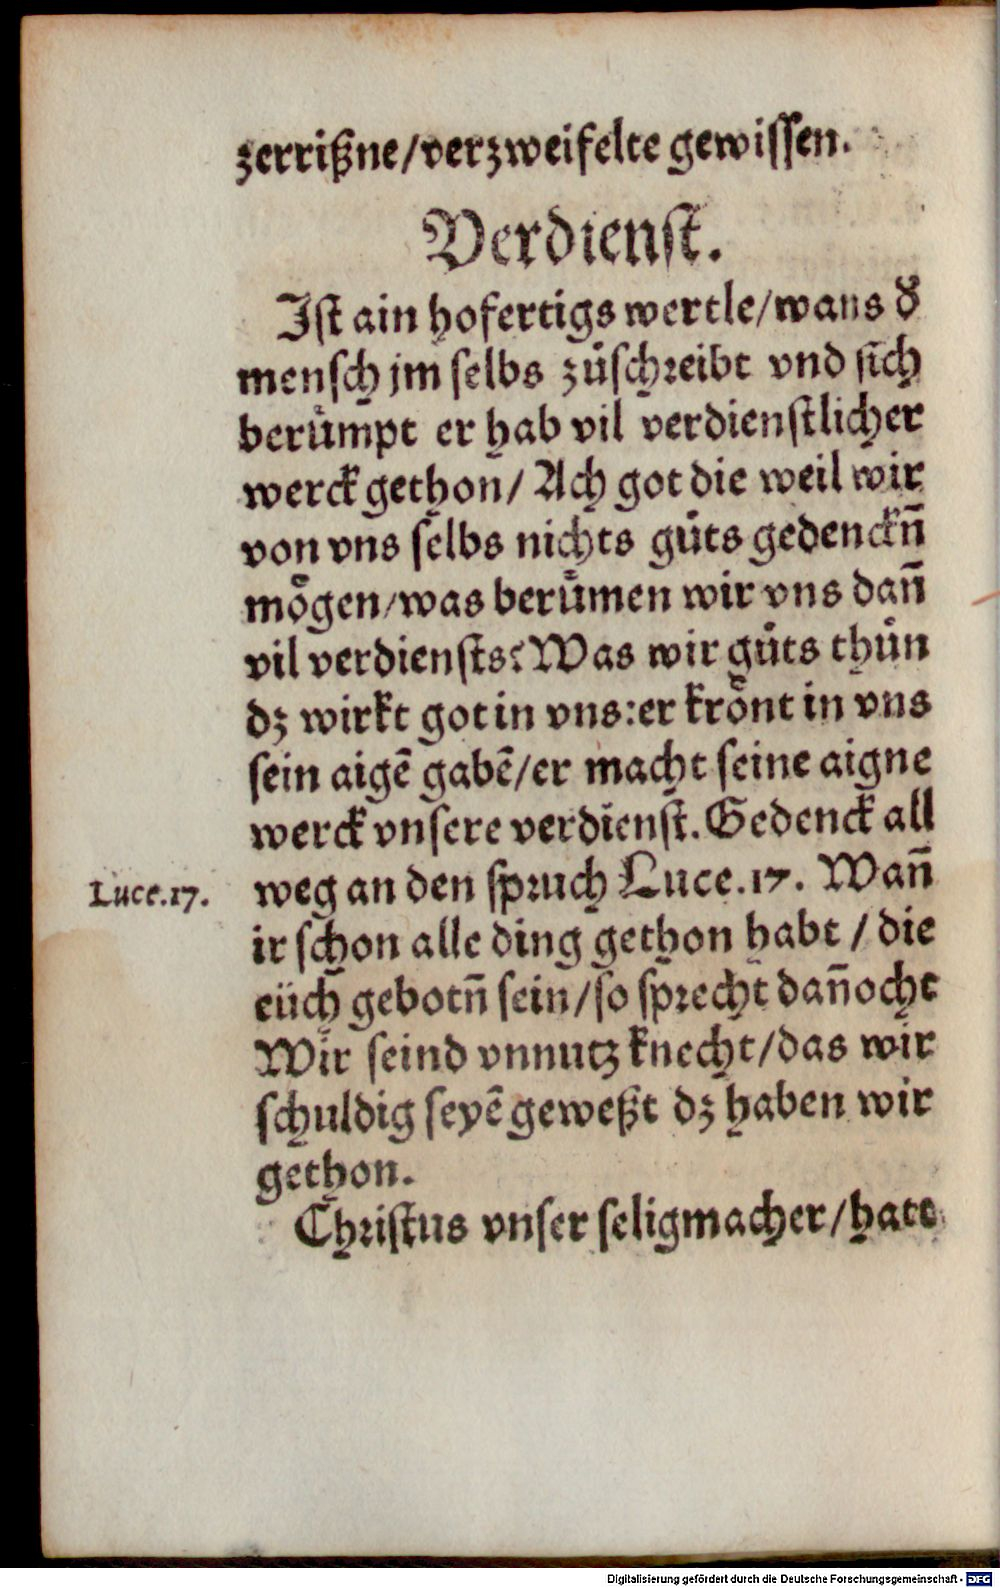 zerrißne/verzweifelte gewissen.
Verdienst.
Ist ain hofertigs wertle/wans d̕
mensch jm selbs zůschreibt vnd sich
berůmpt er hab vil verdienstlicher
werck gethon/ Ach got die weil wir
von vns selbs nichts gůts gedenckn̄
mögen/was berůmen wir vns dan̄
vil verdiensts? Was wir gůts thůn
dz wirkt got in vns: er krönt in vns
sein aigē gabē/er macht seine aigne
werck vnsere verdienst. Gedenck all
weg an den spruch Luce.17. Wan̄
Luce.17.
ir schon alle ding gethon habt / die
eüch gebotn̄ sein/so sprecht dan̄ocht
Wir seind vnnutz knecht/das wir
schuldig seyē geweßt dz haben wir
gethon.
Christus vnser seligmacher/hatt
Digitalisierung gefördert durch die Deutsche Forschungsgemeinschaft - DFG